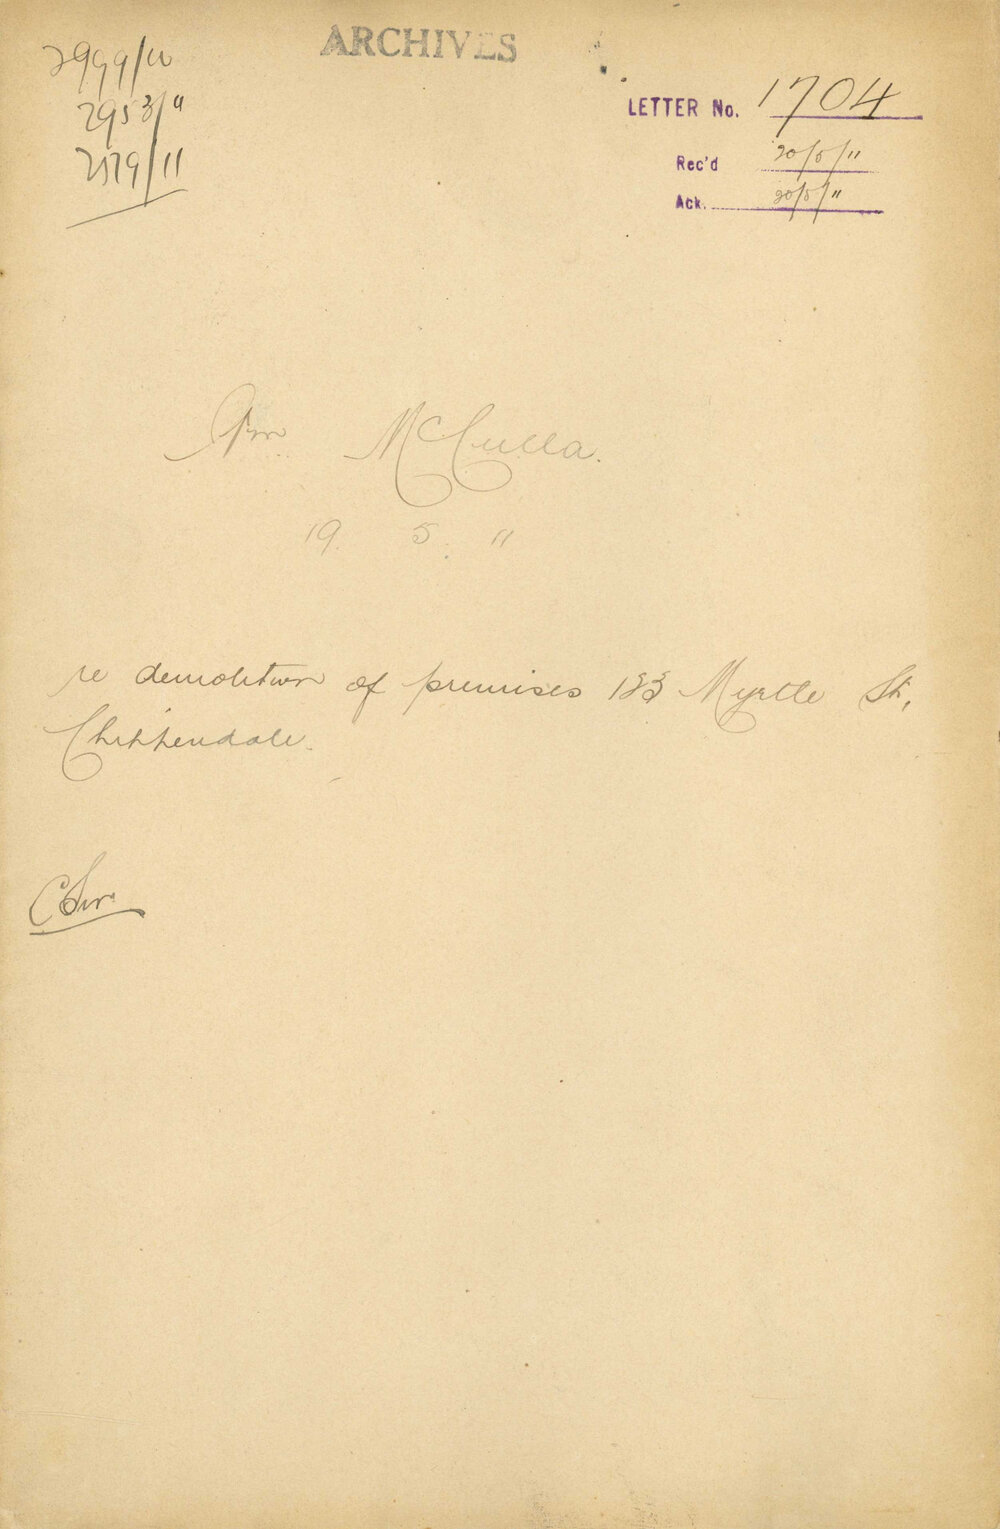 ARCHIVES
2953/11
2579/11
LETTER No. 1704
Rec'd 20/5/11
Ack. 20/5/11
Wm McCulla.
19. 5. 11
re demolition of premises 133 Myrtle St,
Chippendale.